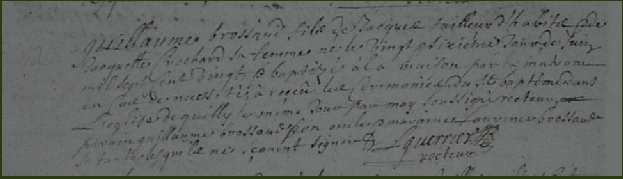 guillaume brossaud fils de Jacque tailleur d'habits et de
Jacquette Rochard sa femme né le vingt sixième Jour de Juin
mil sept cent vingt baptisé à la maison par la matrone
en cas de necessité a receu les ceremonies du St baptéme dans
L'eglise de quilly le même Jour par moy soussigné recteur
parain guillaume brossaud son oncle maraine brossaud
sa tante lesquels ne sçavent signer
Guerrier
recteur